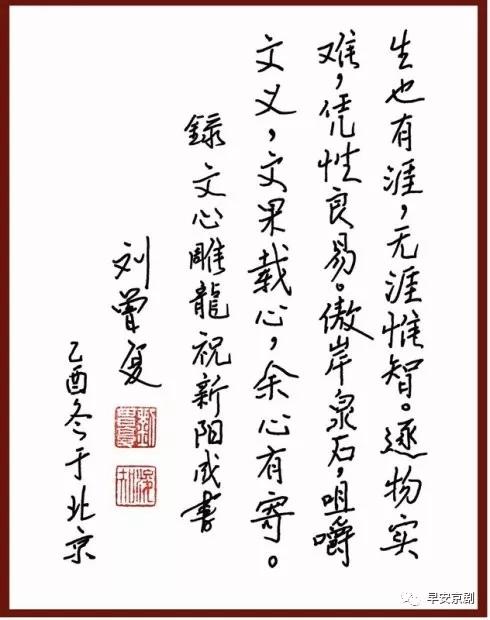 生也有涯，无涯惟智。逐物实
难，凭性良易。傲岸泉石，咀嚼
文义，文果载心，余心有寄。
録文心雕龍祝新阳成書
刘曾复
乙酉冬于北京
早安京剧